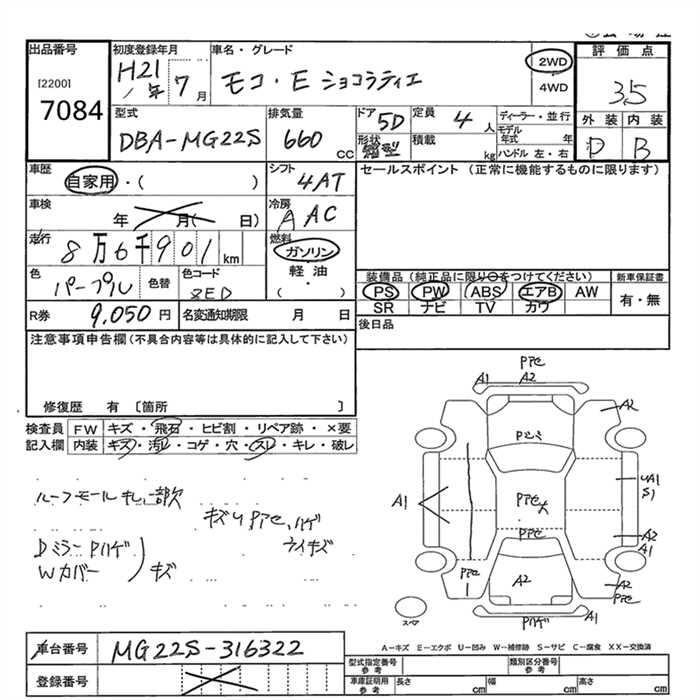 出品番号
[2200]
7084
初度登録年月
H21年7月
車名・グレード
モコ・E ショコラティエ
2WD
4WD
評価点
3.5
外装 内装
D B
型式
DBA-MG22S
排気量
660 CC
ドア 5D
形状 箱型
定員 4人
積載 kg
ディーラー・並行
モデル年式 年
ハンドル 左・右
車歴
自家用・( )
シフト
4AT
セールスポイント (正常に機能するものに限ります)
車検
年 月( 日)
冷房
AAC
走行
8万6千901 km
燃料
ガソリン
軽油
( )
色
パープル
色替
色コード
ZED
装備品(純正品に限り○をつけてください)
PS PW ABS エアB AW
SR ナビ TV カワ
新車保証書
有・無
R券 9,050円
名変通知期限 月 日
後日品
注意事項申告欄(不具合内容等は具体的に記入して下さい)
修復歴 有 〔箇所 〕
検査員記入欄
FW キズ・飛石・ヒビ割・リペア跡・×要
内装 キズ・汚レ・コゲ・穴・スレ・キレ・破レ
ルーフモール キレ、一部欠
キズ、Pアセ、ハゲ
ライキズ
Dミラー Pハゲ
Wカバー キズ
Pアセ
A1 A2
A2
Pシミ
A1
Pアセ大
UA1
S1
Pアセ
A2
A1
Pアセ
A2
A2
Pアセ
Pハゲ
スペア
A－キズ E－エクボ U－凹み W－補修跡 S－サビ C－腐食 XX－交換済
車台番号 MG22S-316322
登録番号
型式指定番号 参考
類別区分番号 参考
車庫証明用 参考
長さ cm 幅 cm 高さ cm